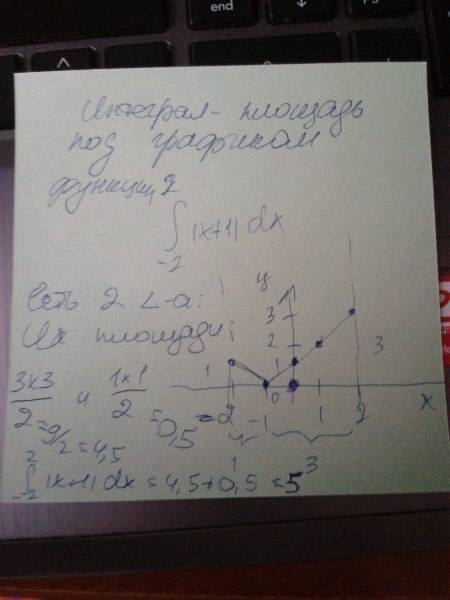 Интеграл - площадь
под графиком
функции
2
∫ |x+1| dx
-2
Есть 2 ∠-а:
Их площади:
3x3/2 = 9/2 = 4,5 и 1x1/2 = 0,5
y
3
2
1
0
1
-2 -1 1 2 x
3
1 3
2
∫ |x+1| dx = 4,5+0,5 = 5
-2